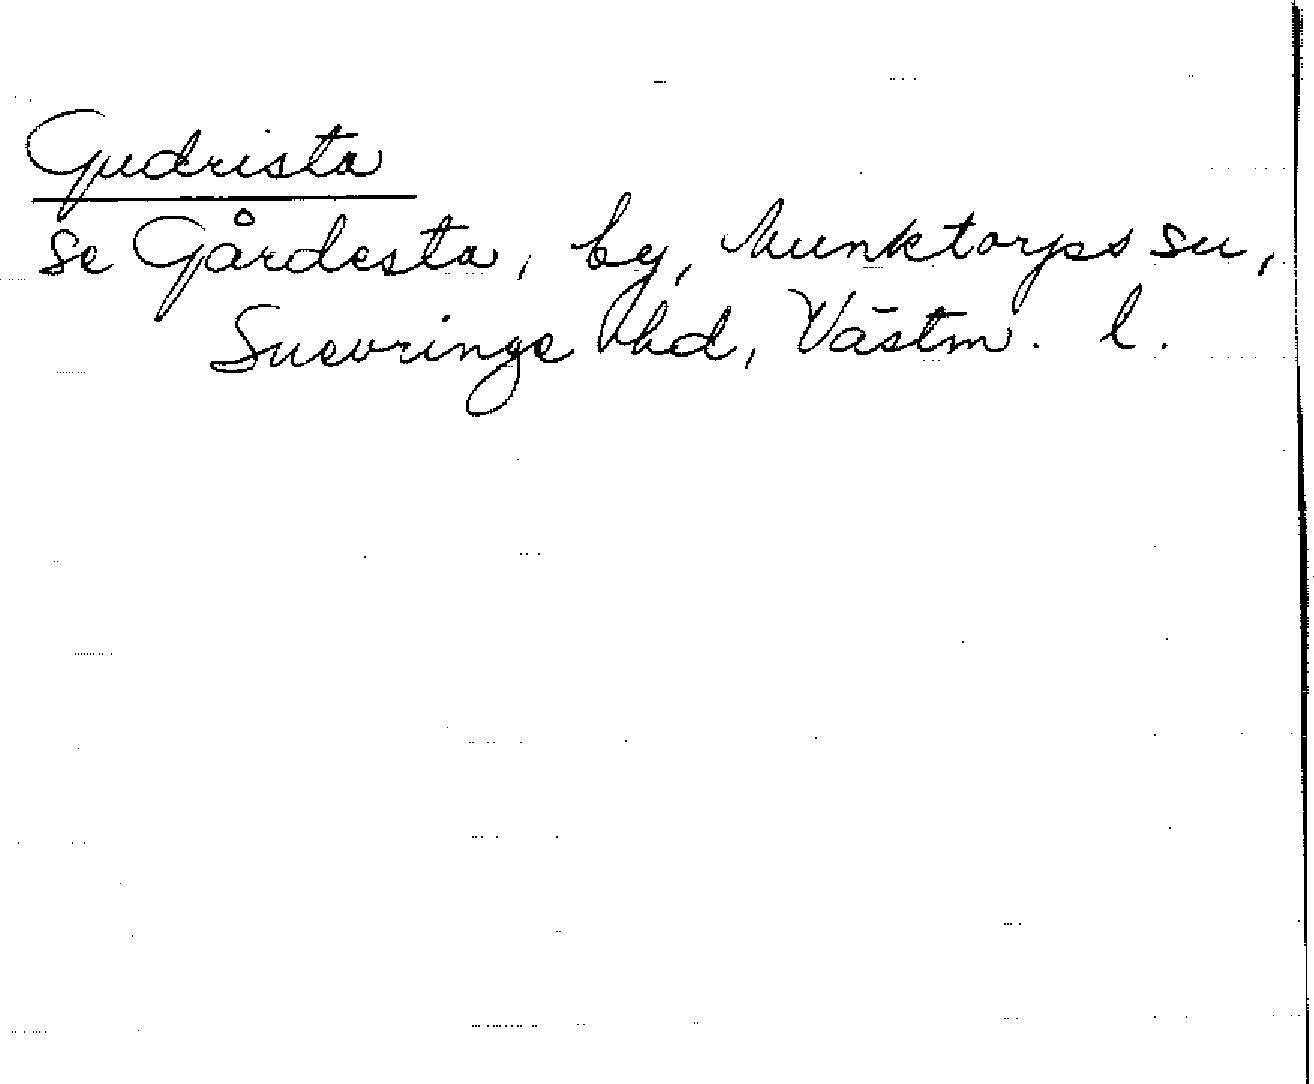 Gudrista
se Gårdesta, by, Munktorps sn,
Snevringe hd, Västm. l.